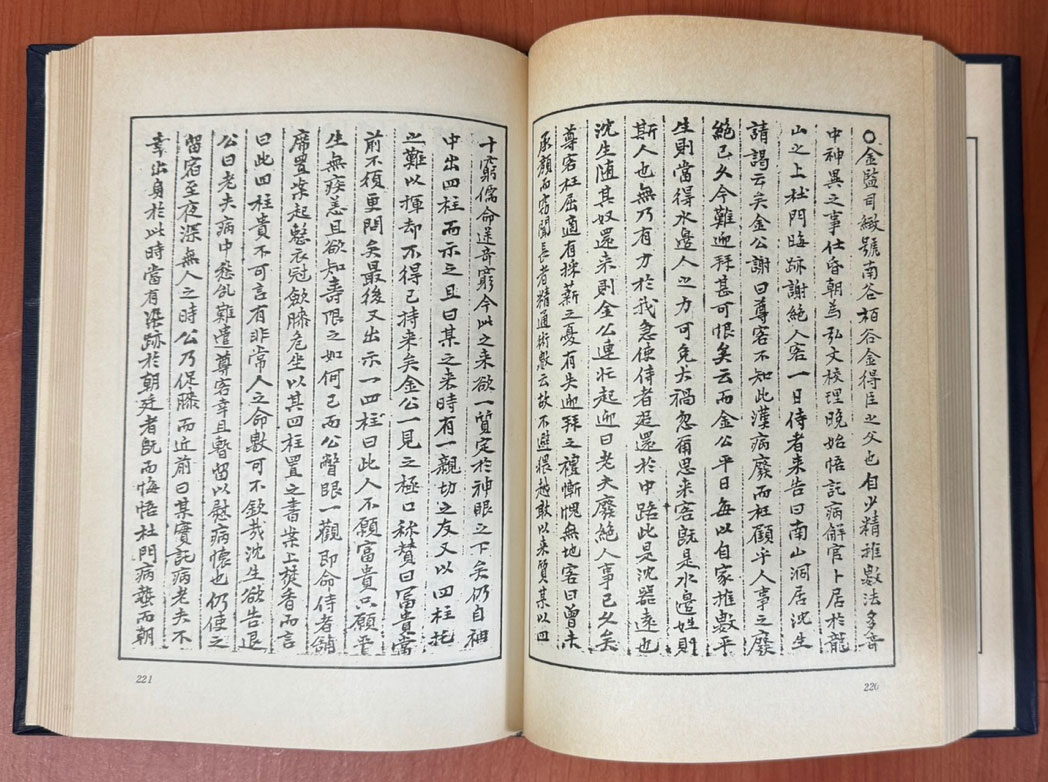 ○金監司緻號南谷栢谷金得臣之父也自少精推數法多奇
中神異之事仕昏朝爲弘文校理晩始悟託病解官卜居於龍
山之上杜門晦跡謝絶人客一日侍者来告曰南山洞居沈生
請謁云矣金公謝曰尊客不知此漢病廢而枉顧乎人事之廢
絶已久今難迎拜甚可恨矣云而金公平日每以自家推數平
生則當得水邊人之力可免大禍忽爾思来客旣是水邊姓則
斯人也無乃有力於我急使侍者追還於中路此是沈器遠也
沈生随其奴還来則金公連忙起迎曰老夫廢絶人事已久矣
尊客枉屈適有採薪之憂有失迎拜之禮慚愧無地客曰曾未
承顔而窃聞長者精通術數云故不避猥越敢以来質某以四
十窮儒命途奇窮今此之来欲一質定於神眼之下矣仍自袖
中出四柱而示之且曰某之来時有一親切之友又以四柱托
之難以揮却不得已持来矣金公一見之極口稱賛曰富貴當
前不須更問矣最後又出示一四柱曰此人不願富貴只願平
生無疾恙且欲知壽限之如何已而公瞥眼一觀即命侍者鋪
席置案起整衣冠斂膝危坐以其四柱置之書案上焚香而言
曰此四柱貴不可言有非常人之命數可不欽哉沈生欲告退
公曰老夫病中愁乱難遣尊客幸且暫留以慰病懷也仍使之
留宿至夜深無人之時公乃促膝而近前曰某實託病老夫不
幸出身於此時當有染跡於朝廷者旣而悔悟杜門病蟄而朝